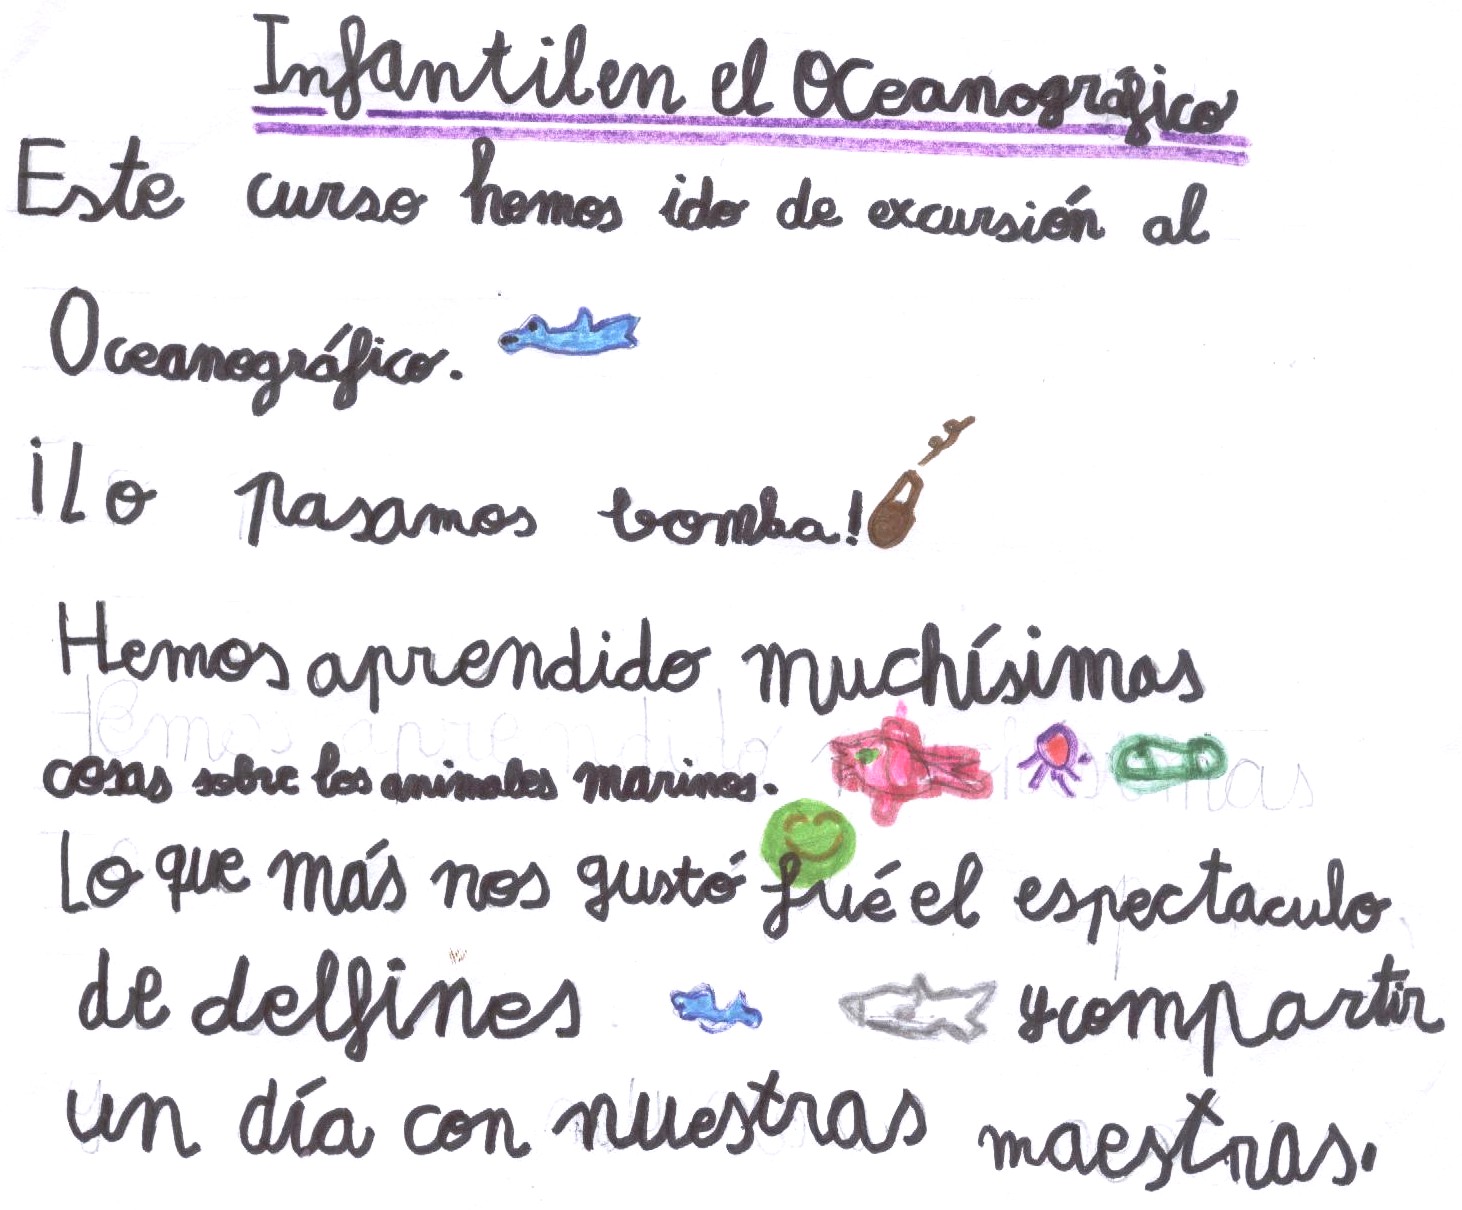 Infantil en el Oceanográfico
Este curso hemos ido de excursión al
Oceanográfico.
¡Lo pasamos bomba!
Hemos aprendido muchísimas
cosas sobre los animales marinos.
Lo que más nos gustó fué el espectaculo
de delfines y compartir
un día con nuestras maestras.